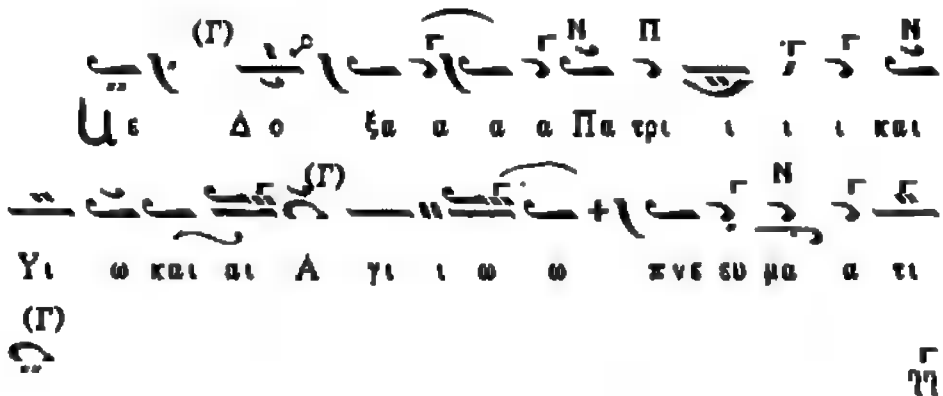 (Γ) Γ Γ Ν Π Γ Γ Ν
με Δο ξα α α α Πα τρι ι ι ι και
Γ (Γ) Γ Γ Ν Γ Γ
Υι ω και αι Α γι ι ω ω πνε ευ μα α τι
(Γ)